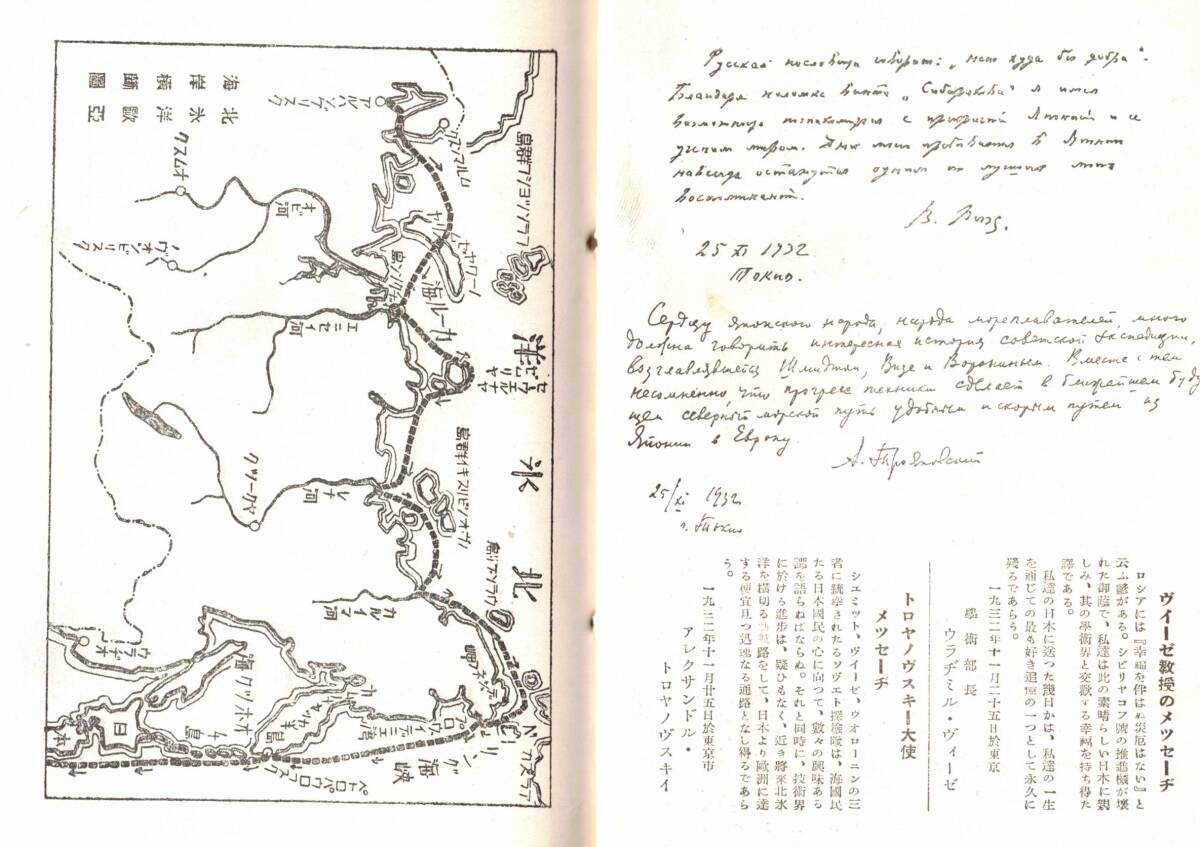 北氷洋歐亞
海岸横斷圖
アルハンゲリスク
オムスク
オビ河
エニセイ河
カーラ海
レナ河
ヤクーツク
北氷洋
千島
日本
ペトロパウロスク
海峡
Русская пословица говорит: „нет худа без добра“.
Благодаря поломке винта „Сибирякова“ я имел
возможность познакомиться с природой Японии и ее
ученым миром. Дни моего пребывания в Японии
навсегда останутся одними из лучших моих
воспоминаний.
В. Визе.
25 XI 1932
Токио.
Сердцу японского народа, народа мореплавателей, много
должна говорить интересная история советской экспедиции,
возглавлявшейся Шмидтом, Визе и Ворониным. Вместе с тем
несомненно, что прогресс техники сделает в ближайшем буду
щем северный морской путь удобным и скорым путем из
Японии в Европу.
А. Трояновский
25/XI 1932
г. Токио
ヴイーゼ教授のメツセーヂ
ロシアには『幸福を伴はぬ災厄はない』と
云ふ諺がある。シビリヤコフ號の推進機が壞
れた御蔭で、私達は此の素晴らしい日本に親
しみ、其の學術界と交歡する幸福を持ち得た
譯である。
私達の日本に送つた幾日かは、私達の一生
を通じての最も好き追憶の一つとして永久に
殘るであらう。
一九三二年十一月二十五日於東京
學術部長
ウラヂミル・ヴイーゼ
トロヤノヴスキー大使
メツセーヂ
シユミツト、ヴイーゼ、ウオローニンの三
者に統率されたるソヴエト探檢隊は、海國民
たる日本國民の心に向つて、數々の興味ある
譚を語らねばならぬ。それと同時に、技術界
に於ける進步は、疑ひもなく、近き將來北氷
洋を横切る航路をして、日本より歐洲に達
する便宜且つ迅速なる通路となし得るであら
う。
一九三二年十一月廿五日於東京市
アレクサンドル・
トロヤノヴスキイ